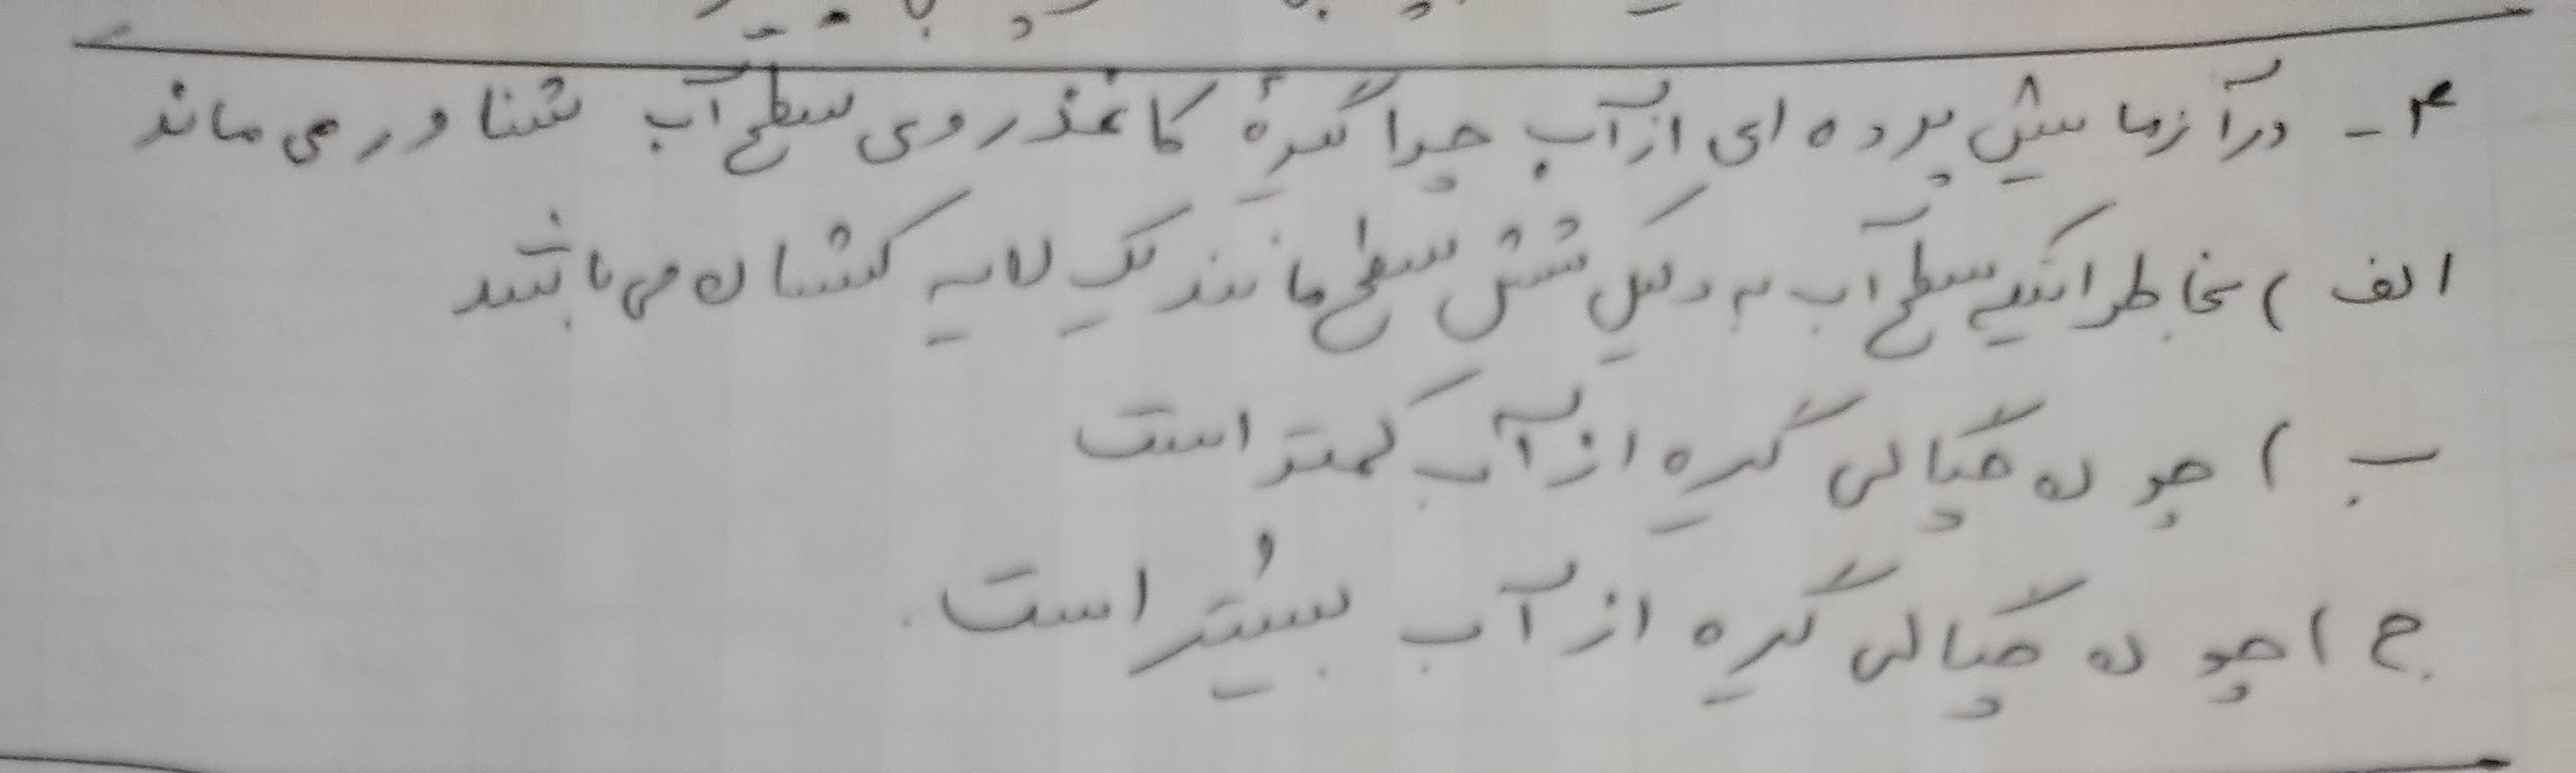 ۴- در آزمایش پرده ای از آب چرا گیرهٔ کاغذ روی سطح آب شناور می ماند
الف) بخاطر اینکه سطح آب به دلیل کشش سطح مانند یک لایه کشسان می باشد
ب) چون چگالی گیره از آب کمتر است
ج) چون چگالی گیره از آب بیشتر است.